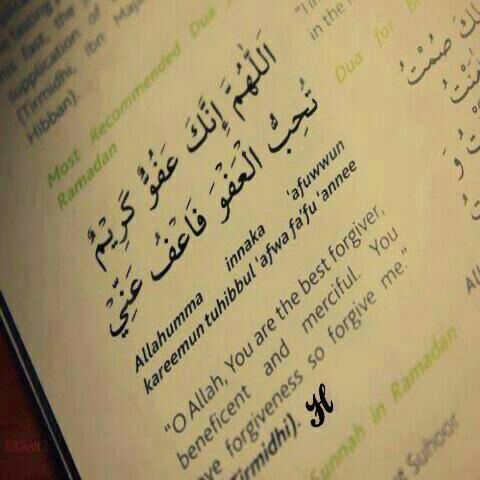 fasting
his fast, the
supplication of
(Tirmidhi, Ibn Majah
Hibban).
Most Recommended Dua
Ramadan
اَللّٰهُمَّ إِنَّكَ عَفُوٌّ كَرِيْمٌ
تُحِبُّ الْعَفْوَ فَاعْفُ عَنِّيْ
Allahumma innaka 'afuwwun
kareemun tuhibbul 'afwa fa'fu 'annee
"O Allah, You are the best forgiver,
beneficent and merciful. You
forgiveness so forgive me."
(Tirmidhi).
H
Sunnah in Ramadan
Suhoor
in the
Dua for
صُمْتُ
©KIRAN